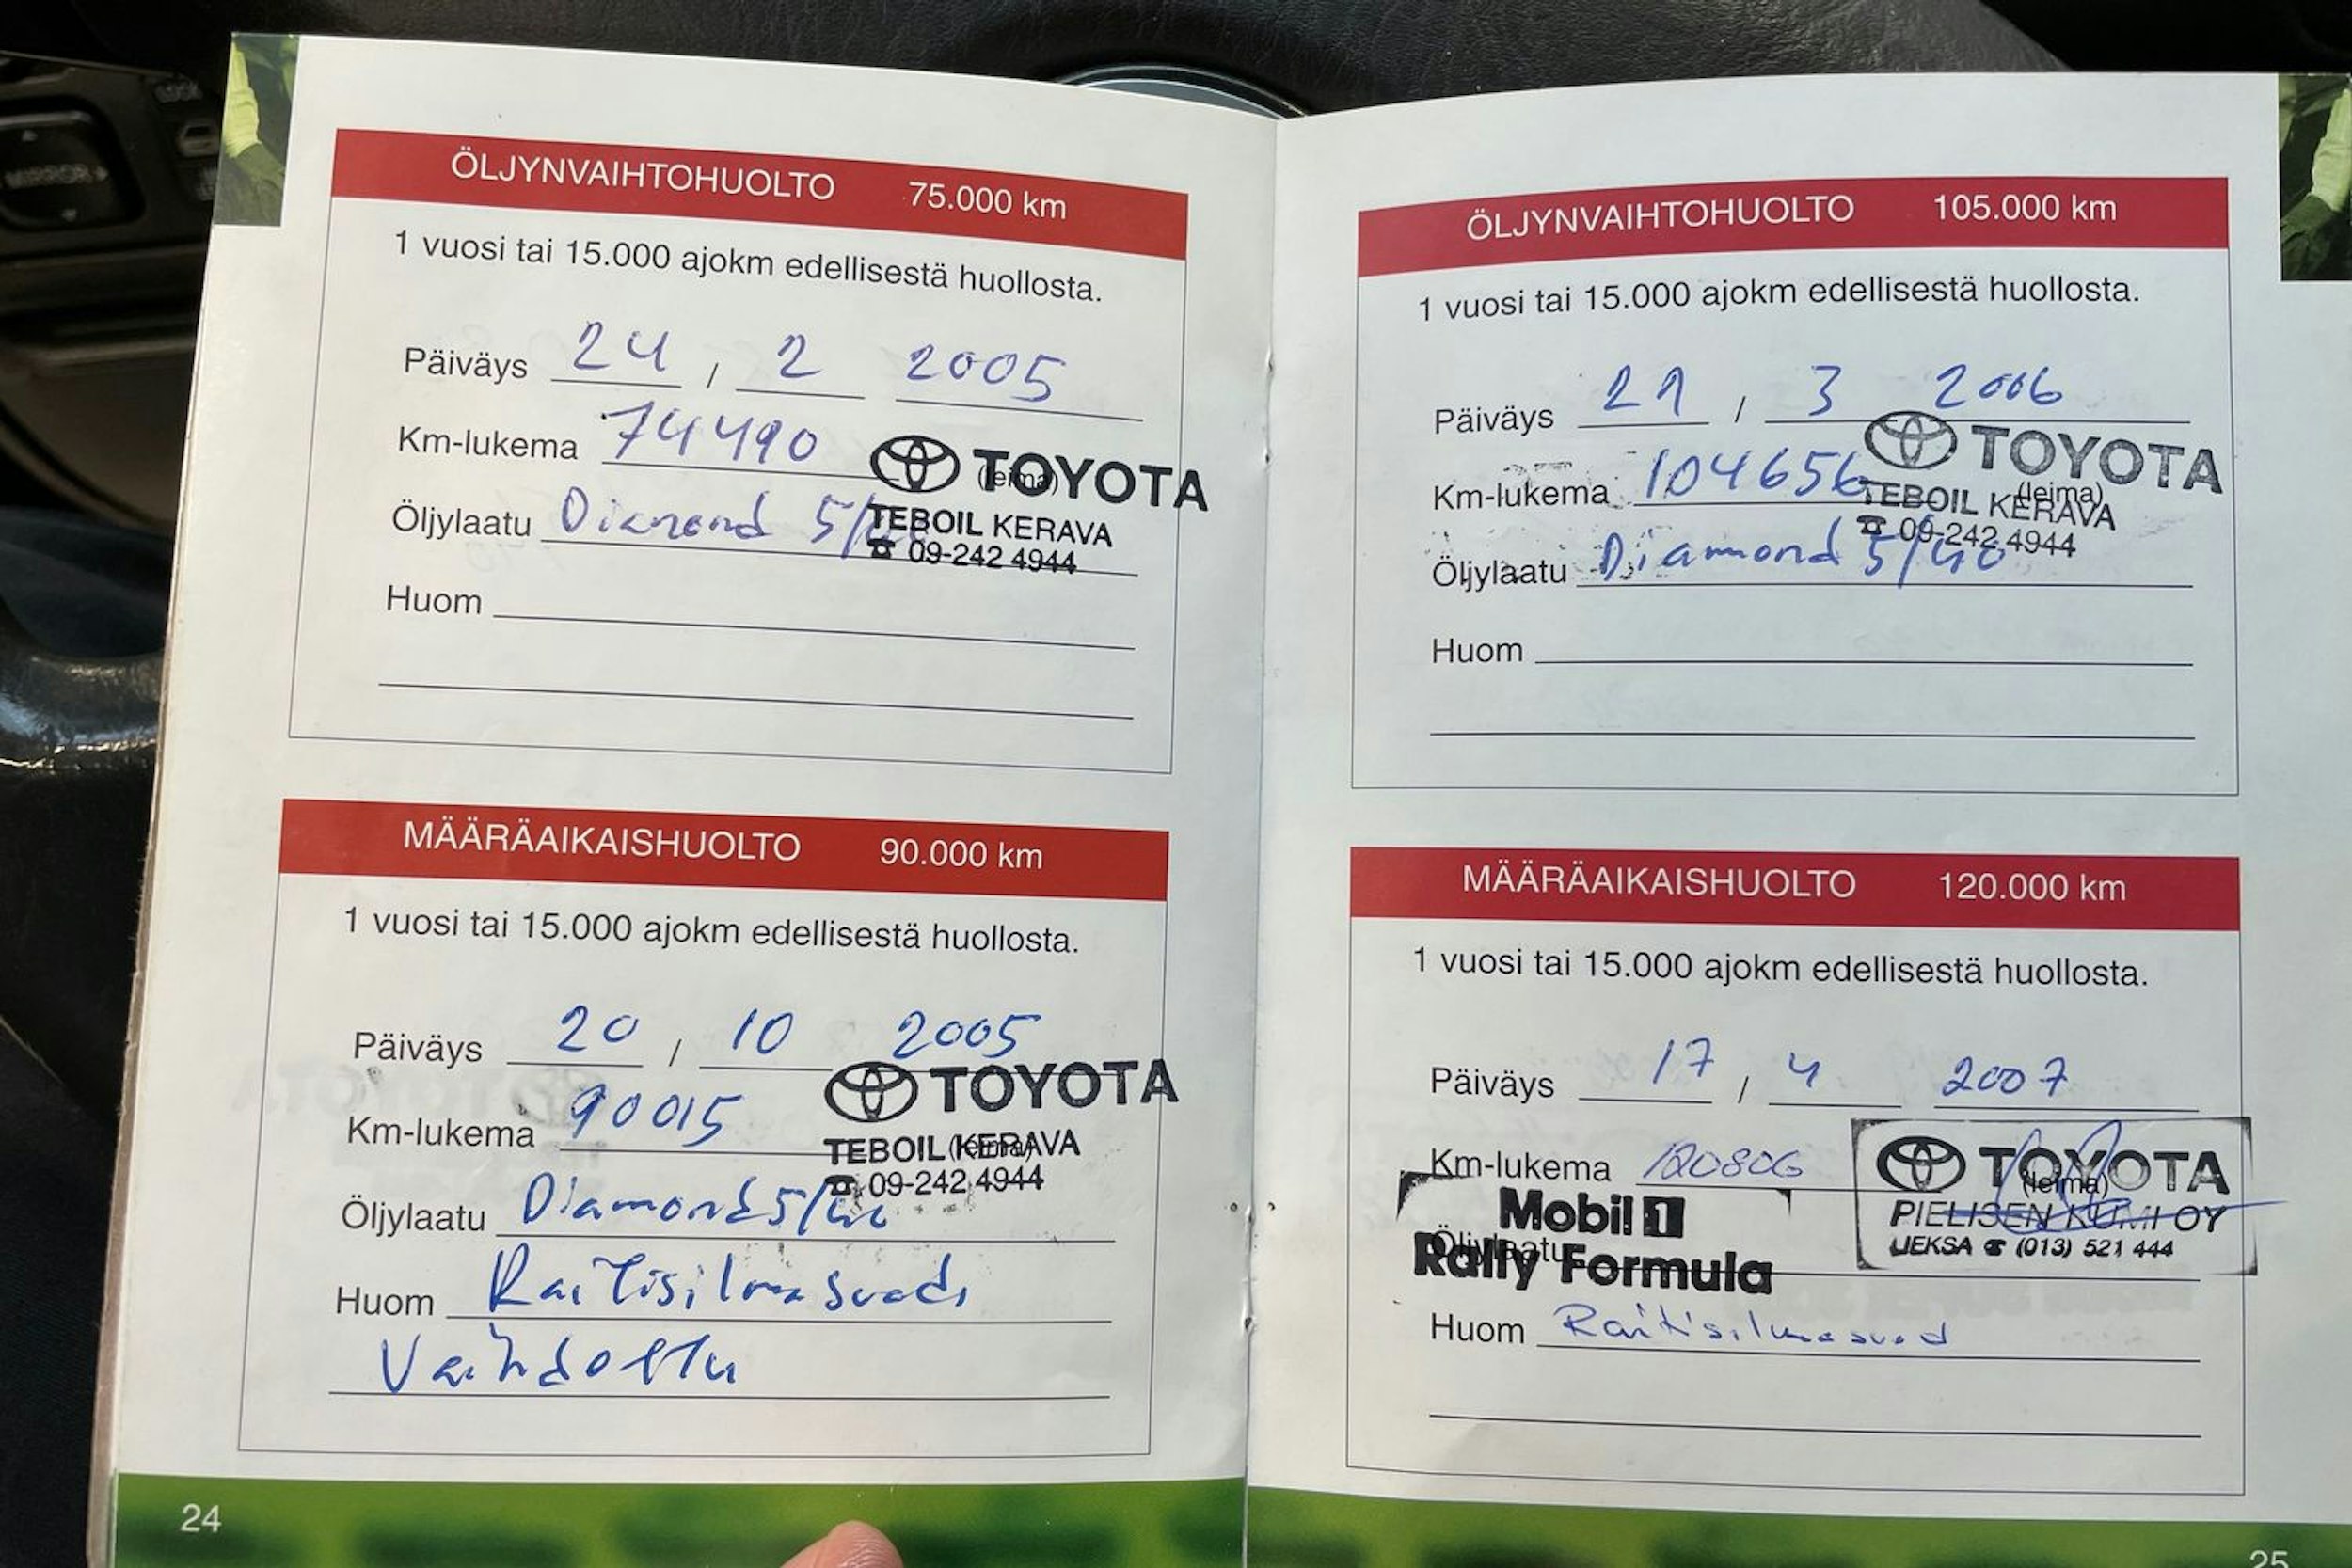 ÖLJYNVAIHTOHUOLTO 75.000 km
1 vuosi tai 15.000 ajokm edellisestä huollosta.
Päiväys 24 / 2 2005
Km-lukema 74490
TOYOTA
(leima)
Öljylaatu Diamond 5/40
TEBOIL KERAVA
☎ 09-242 4944
Huom
MÄÄRÄAIKAISHUOLTO 90.000 km
1 vuosi tai 15.000 ajokm edellisestä huollosta.
Päiväys 20 / 10 2005
Km-lukema 90015
TOYOTA
TEBOIL KERAVA
(leima)
☎ 09-242 4944
Öljylaatu Diamond 5/40
Huom Raitisilmasuod.
Vaihdettu
24
ÖLJYNVAIHTOHUOLTO 105.000 km
1 vuosi tai 15.000 ajokm edellisestä huollosta.
Päiväys 21 / 3 2006
Km-lukema 104656
TOYOTA
(leima)
TEBOIL KERAVA
☎ 09-242 4944
Öljylaatu Diamond 5/40
Huom
MÄÄRÄAIKAISHUOLTO 120.000 km
1 vuosi tai 15.000 ajokm edellisestä huollosta.
Päiväys 17 / 4 2007
Km-lukema 120806
TOYOTA
(leima)
PIELISEN KUMI OY
LIEKSA ☎ (013) 521 444
Mobil 1
Öljylaatu
Rally Formula
Huom Raitisilmasuod
25
MIRROR